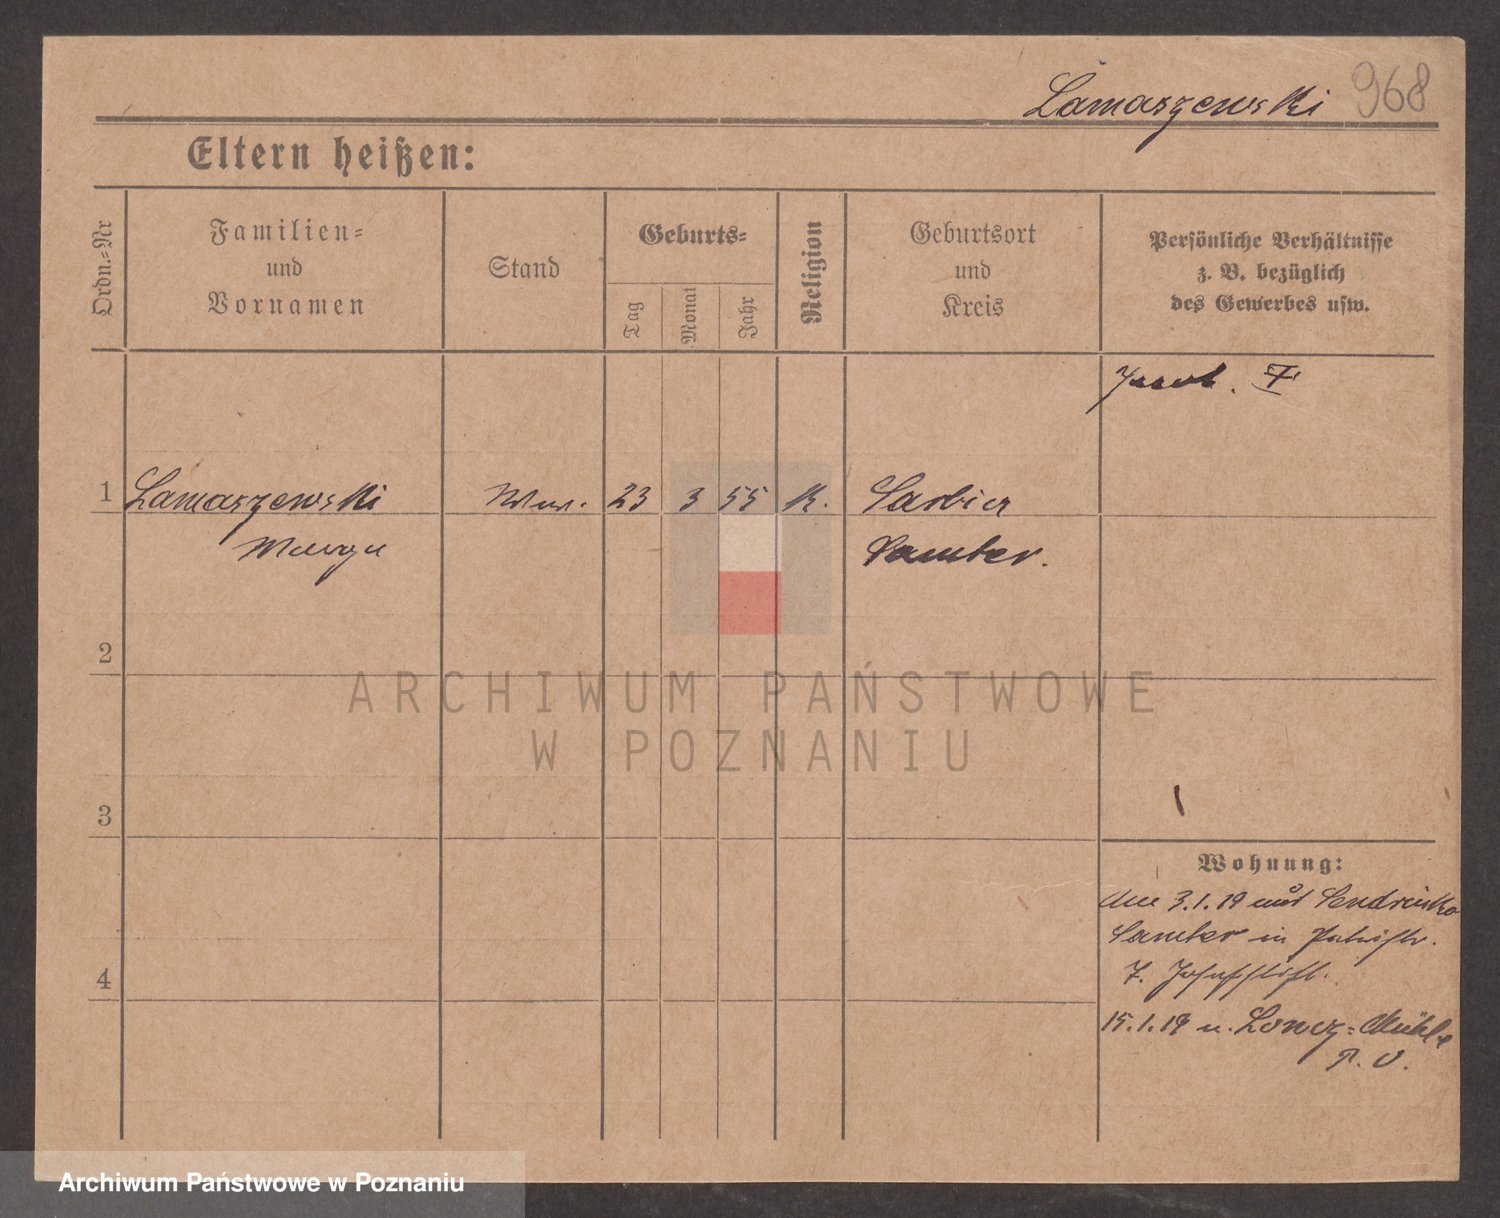 Lamaszewski 968
Eltern heißen:
Ordn.=Nr
Familien=
und
Vornamen
Stand
Geburts=
Tag
Monat
Jahr
Religion
Geburtsort
und
Kreis
Persönliche Verhältnisse
z. B. bezüglich
des Gewerbes usw.
1 Lamaszewski 23 3 55 K.
Samter.
2
3
4
Wohnung:
3.1.19
Samter in
7.
15.1.19 n. Loncz=Mühle
P. O.
ARCHIWUM PAŃSTWOWE
W POZNANIU
Archiwum Państwowe w Poznaniu